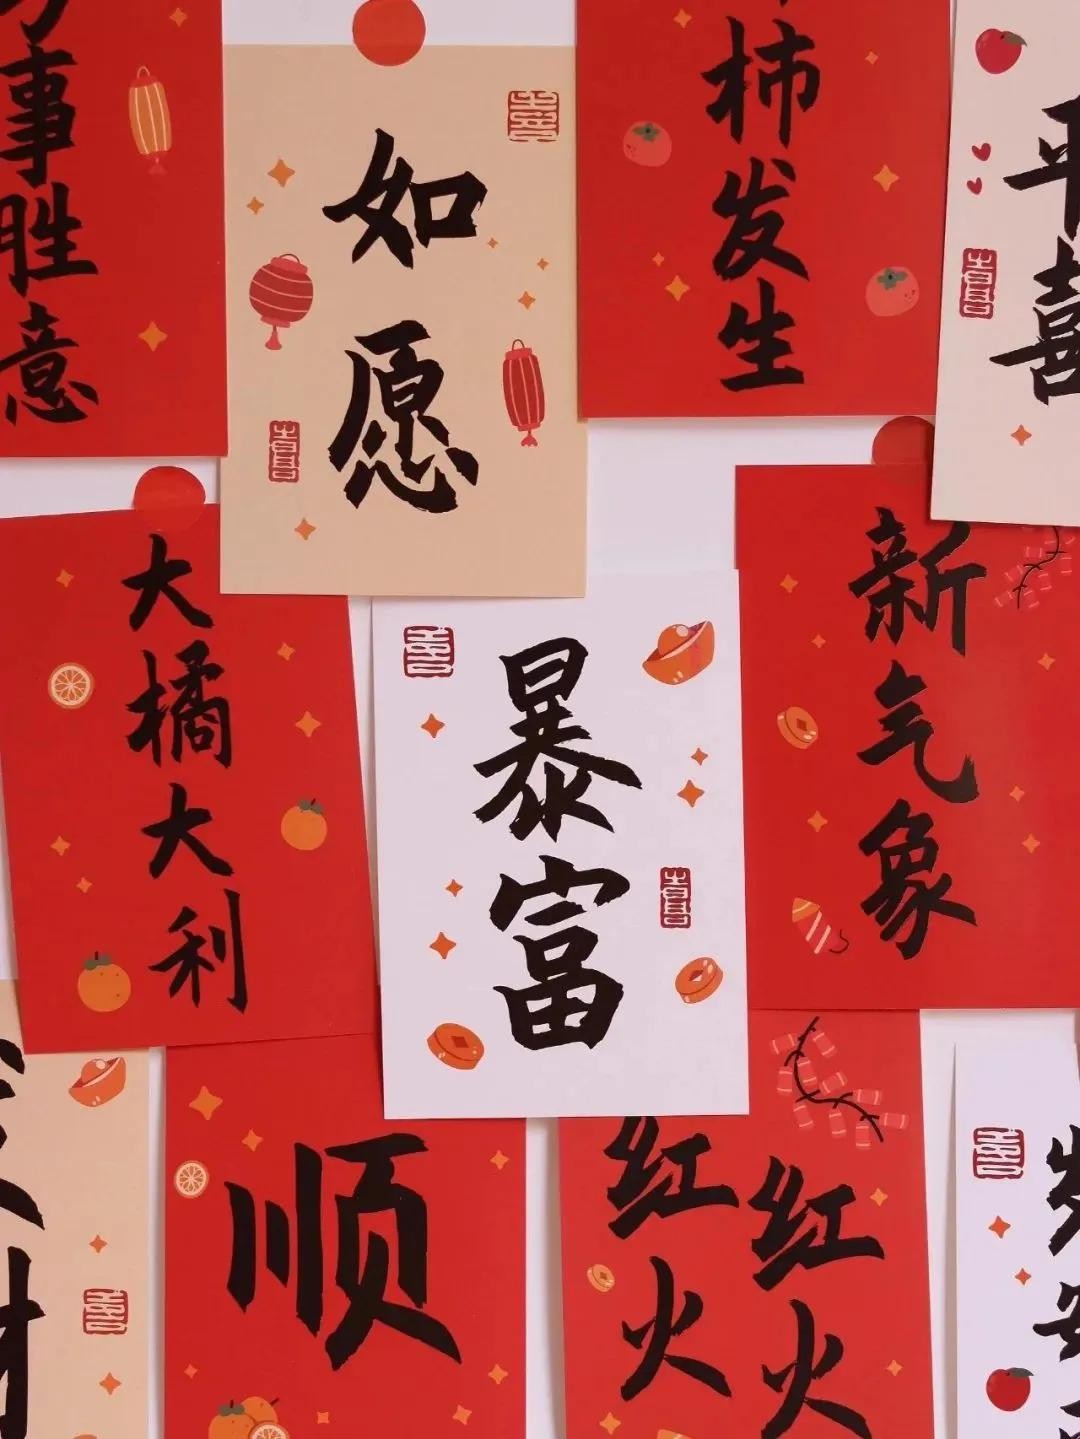 事胜意
如愿
柿发生
平
喜
大橘大利
暴富
新气象
财
顺
红红
火火